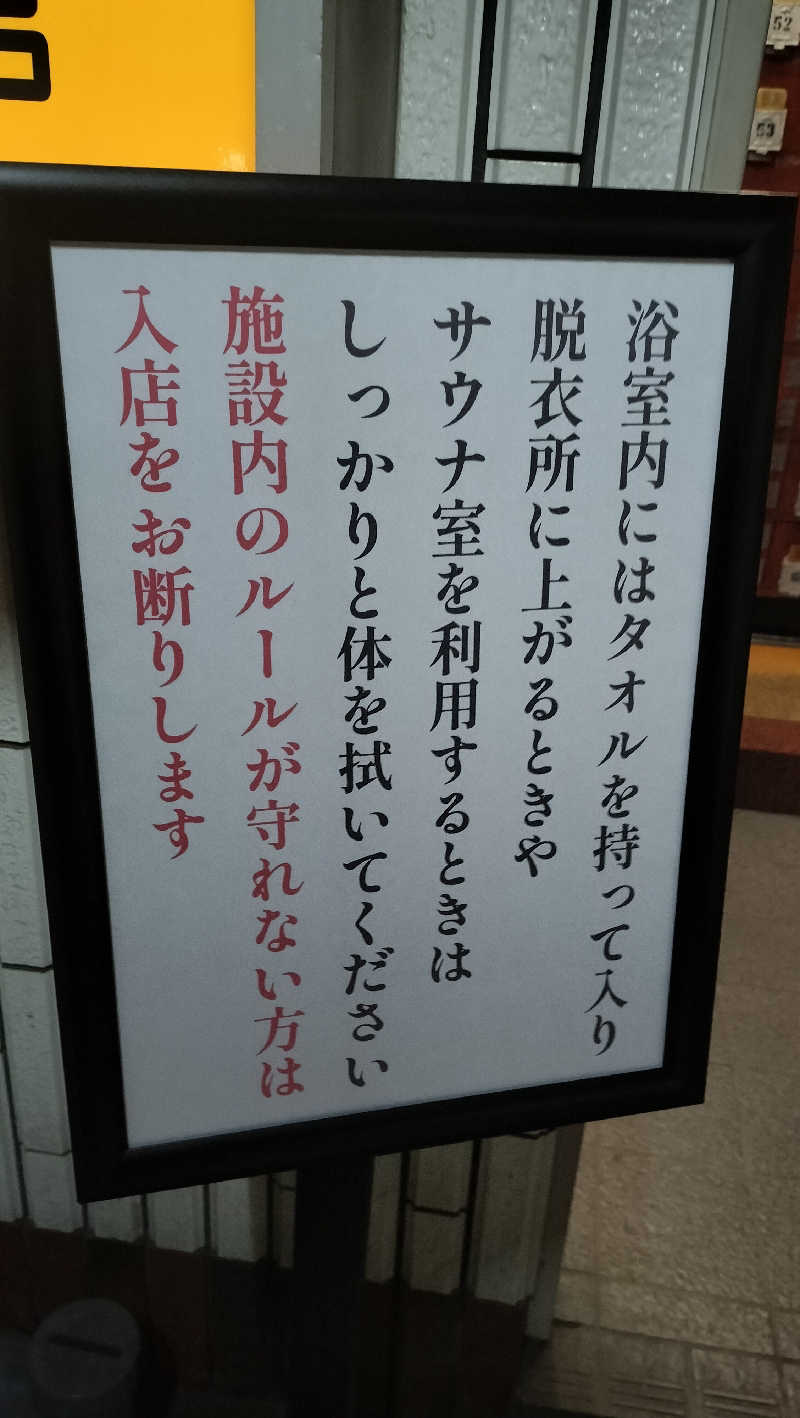 浴室内にはタオルを持って入り
脱衣所に上がるときや
サウナ室を利用するときは
しっかりと体を拭いてください
施設内のルールが守れない方は
入店をお断りします
52
53